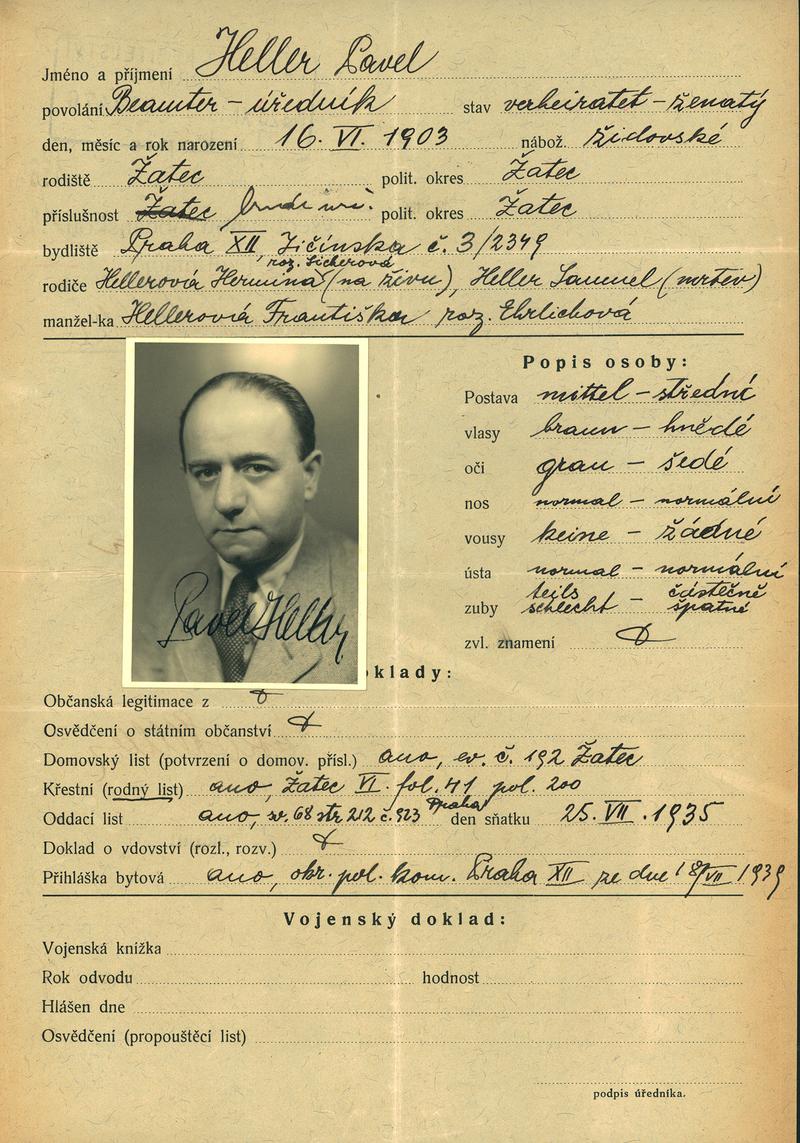 Jméno a příjmení Heller Pavel
povolání Beamter – úředník stav verheiratet – ženatý
den, měsíc a rok narození 16. VI. 1903 nábož. židovské
rodiště Žatec polit. okres Žatec
příslušnost Žatec polit. okres Žatec
bydliště Praha XII, Jičínska č. 3/2349
roz. Sicherová
rodiče Hellerová Hermina (na živu), Heller Samuel (mrtev)
manžel-ka Hellerová Františka roz. Ehrlichová
Popis osoby:
Postava mittel – střední
vlasy braun – hnědé
oči grau – šedé
nos normal – normální
vousy keine – žádné
ústa normal – normální
teils částečně
zuby schlecht – špatné
zvl. znamení
Pavel Heller
oklady:
Občanská legitimace z
Osvědčení o státním občanství
Domovský list (potvrzení o domov. přísl.) ano, ev. č. 192 Žatec
Křestní (rodný list) ano, Žatec VI. fol. 41 pol. 200
Oddací list ano, sv. 68 str 212 č. 923 Praha den sňatku 25. VII. 1935
Doklad o vdovství (rozl., rozv.)
Přihláška bytová ano, okr. pol. kom. Praha XII ze dne 18/VII 1939
Vojenský doklad:
Vojenská knížka
Rok odvodu hodnost
Hlášen dne
Osvědčení (propouštěcí list)
podpis úředníka.